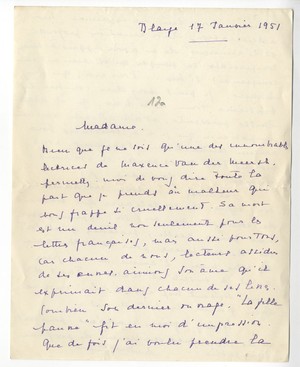 Blaye 17 Janvier 1951
120
Madame.
Bien que je ne sois qu'une des innombrables
lectrices de Maxence Van der Meersch,
permettez moi de vous dire toute la
part que je prends au malheur qui
vous frappe si cruellement. Sa mort
est un deuil non seulement pour les
lettres françaises, mais aussi pour tous,
car chacun de nous, lecteurs assidus
de ses œuvres, aimions son âme qu'il
exprimait dans chacun de ses livres.
Combien son dernier ouvrage. "La fille
pauvre" fit en moi d'impression
Que de fois j'ai voulu prendre la